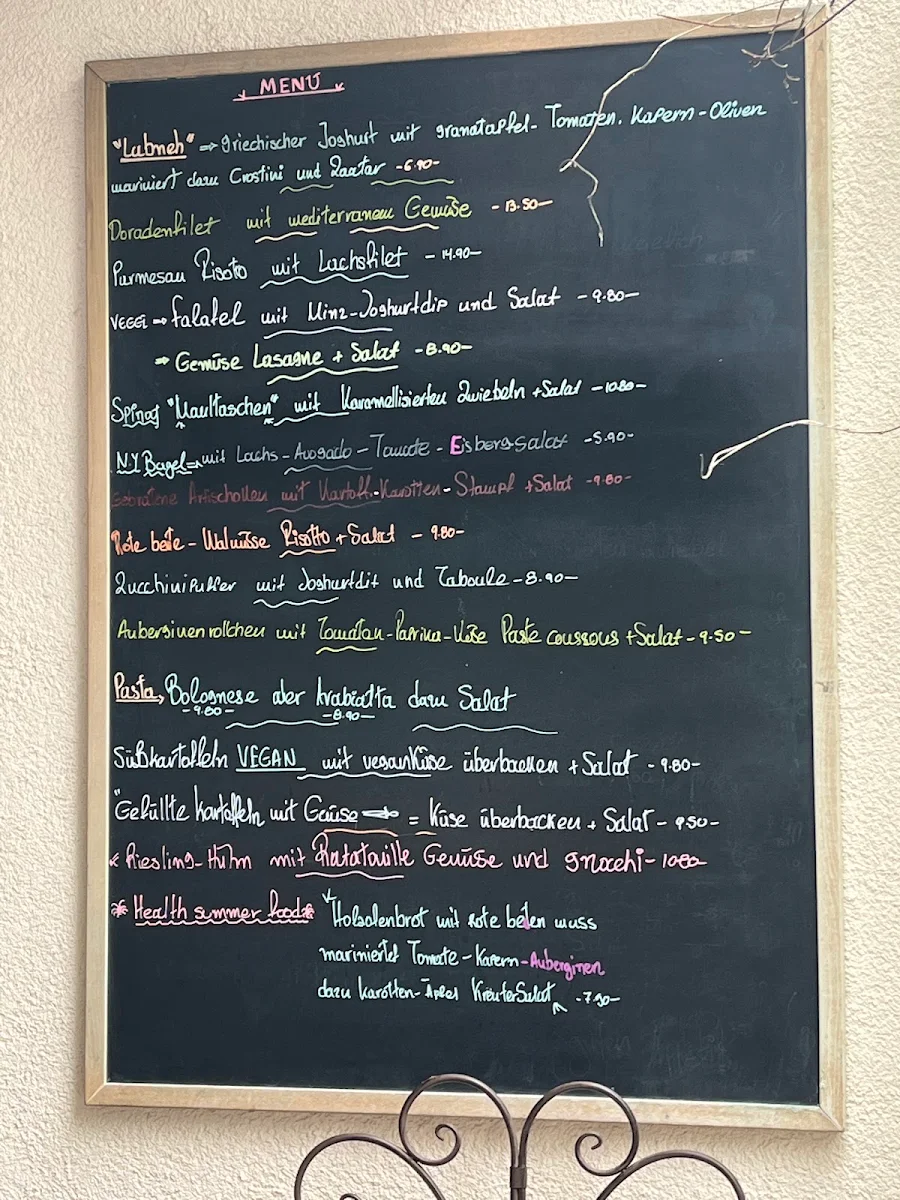 MENÜ
"Labneh" ⇒ griechischer Joghurt mit granatapfel- Tomaten. Kapern-Oliven
mariniert dazu Crostini und Zaatar -6.90-
Doradenfilet mit mediterranem Gemüse - 13.50-
Parmesan Risoto mit Lachsfilet - 14.90-
VEGGI → falafel mit Minz-Joghurtdip und Salat - 9.80-
⇒ Gemüse Lasagne + Salat - 8.90-
Spinat "Maultaschen" mit Karamellisierten Zwiebeln + Salat - 10.80-
N.Y. Bagel ⇒ mit Lachs-Avogado-Tomate-Eisberg-Salat - 5.90-
Gebratene Artischoken mit Kartoff.-Karotten-Stampf + Salat - 9.80-
Rote bete - Walnüsse Risotto + Salat - 9.80-
Zucchinipuffer mit Joghurtdit und Taboule - 8.90-
Auberginenröllchen mit Tomaten-Paprika-Käse Paste coussous + Salat - 9.50-
Pasta, Bolognese oder Arabiatta dazu Salat
-9.80- -8.90-
Süßkartoffeln VEGAN mit vegankäse überbacken + Salat - 9.80-
"Gefüllte Kartoffeln mit Gemüse = Käse überbacken + Salat - 9.50-
Riesling-Huhn mit Ratatouille Gemüse und gnocchi - 10.80
* Health summer food * Holzofenbrot mit Rote beten muss
marinierte Tomate-Kapern-Auberginen
dazu Karotten-Äpfel KräuterSalat -7.90-